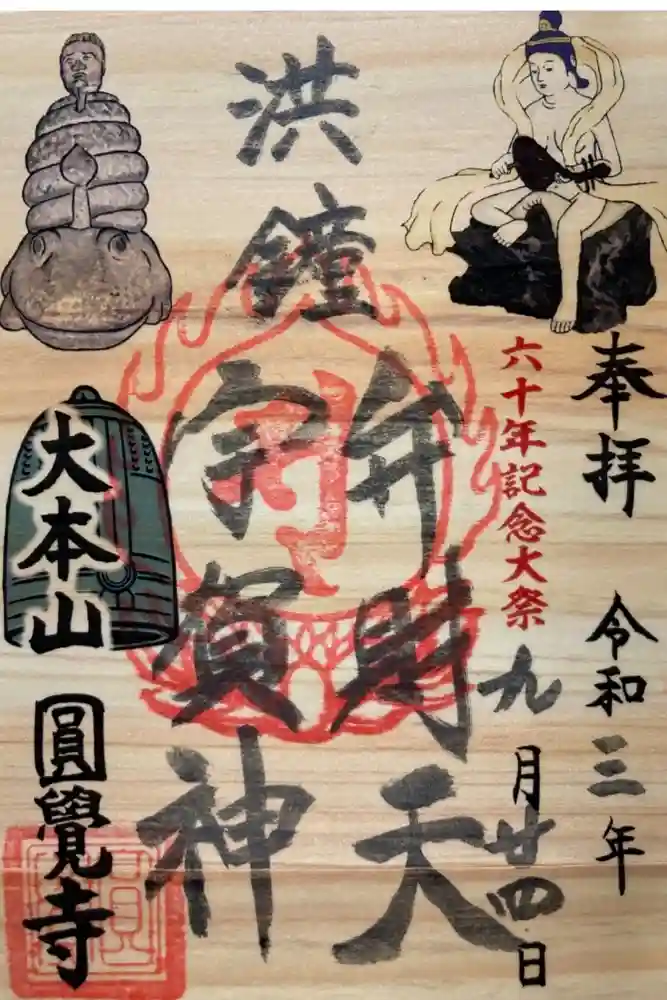 奉拝
令和三年
六十年記念大祭
九月廿四日
洪鐘
弁財天
宇賀神
大本山
圓覺寺